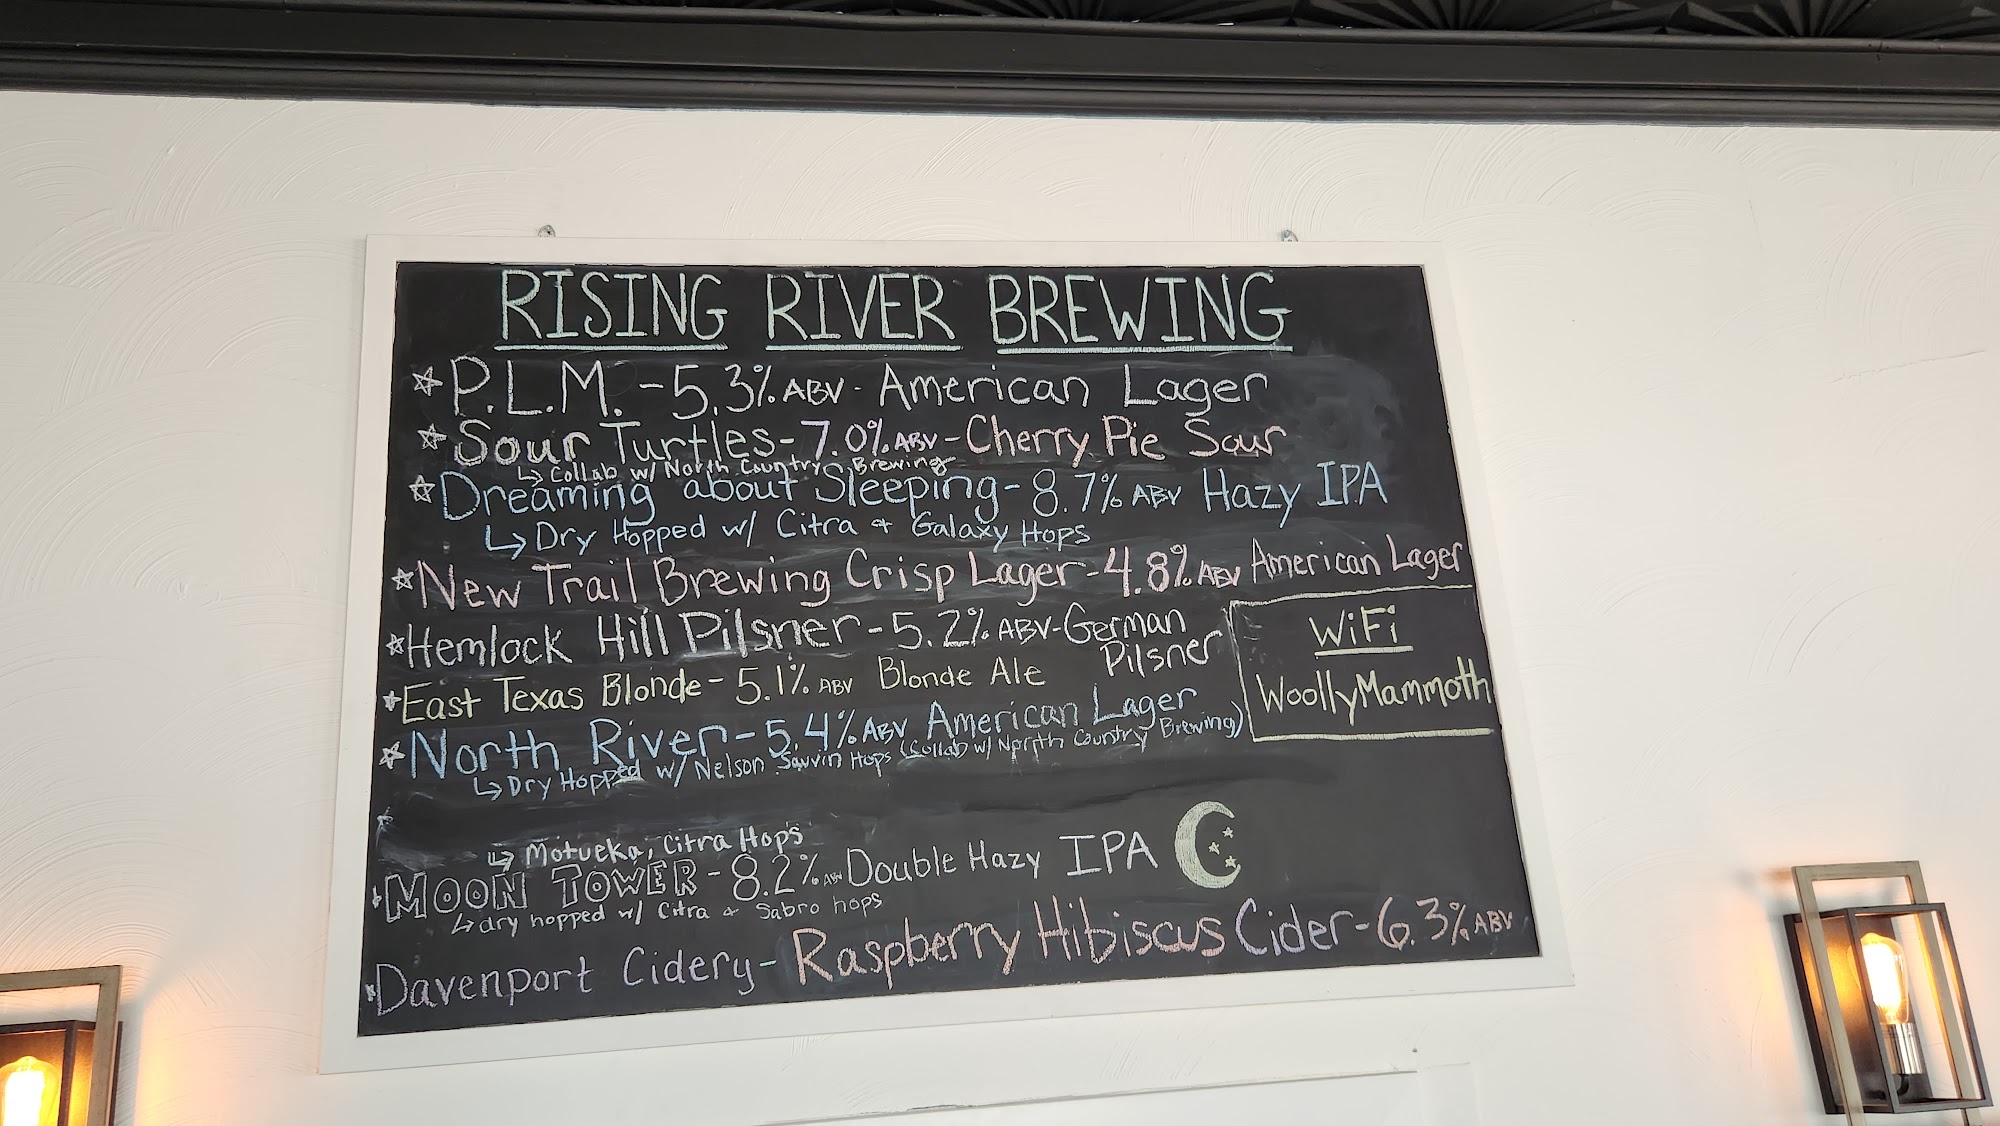 RISING RIVER BREWING
P.L.M. - 5.3% ABV - American Lager
Sour Turtles - 7.0% ABV - Cherry Pie Sour
↳ Collab w/ North Country Brewing
Dreaming about Sleeping - 8.7% ABV Hazy IPA
↳ Dry Hopped w/ Citra + Galaxy Hops
New Trail Brewing Crisp Lager - 4.8% ABV American Lager
Hemlock Hill Pilsner - 5.2% ABV - German
Pilsner
East Texas Blonde - 5.1% ABV Blonde Ale
North River - 5.4% ABV American Lager
↳ Dry Hopped w/ Nelson Sauvin Hops (Collab w/ North Country Brewing)
WiFi
WoollyMammoth
↳ Motueka, Citra Hops
MOON TOWER - 8.2% ABV Double Hazy IPA
↳ dry hopped w/ Citra + Sabro hops
Davenport Cidery - Raspberry Hibiscus Cider - 6.3% ABV